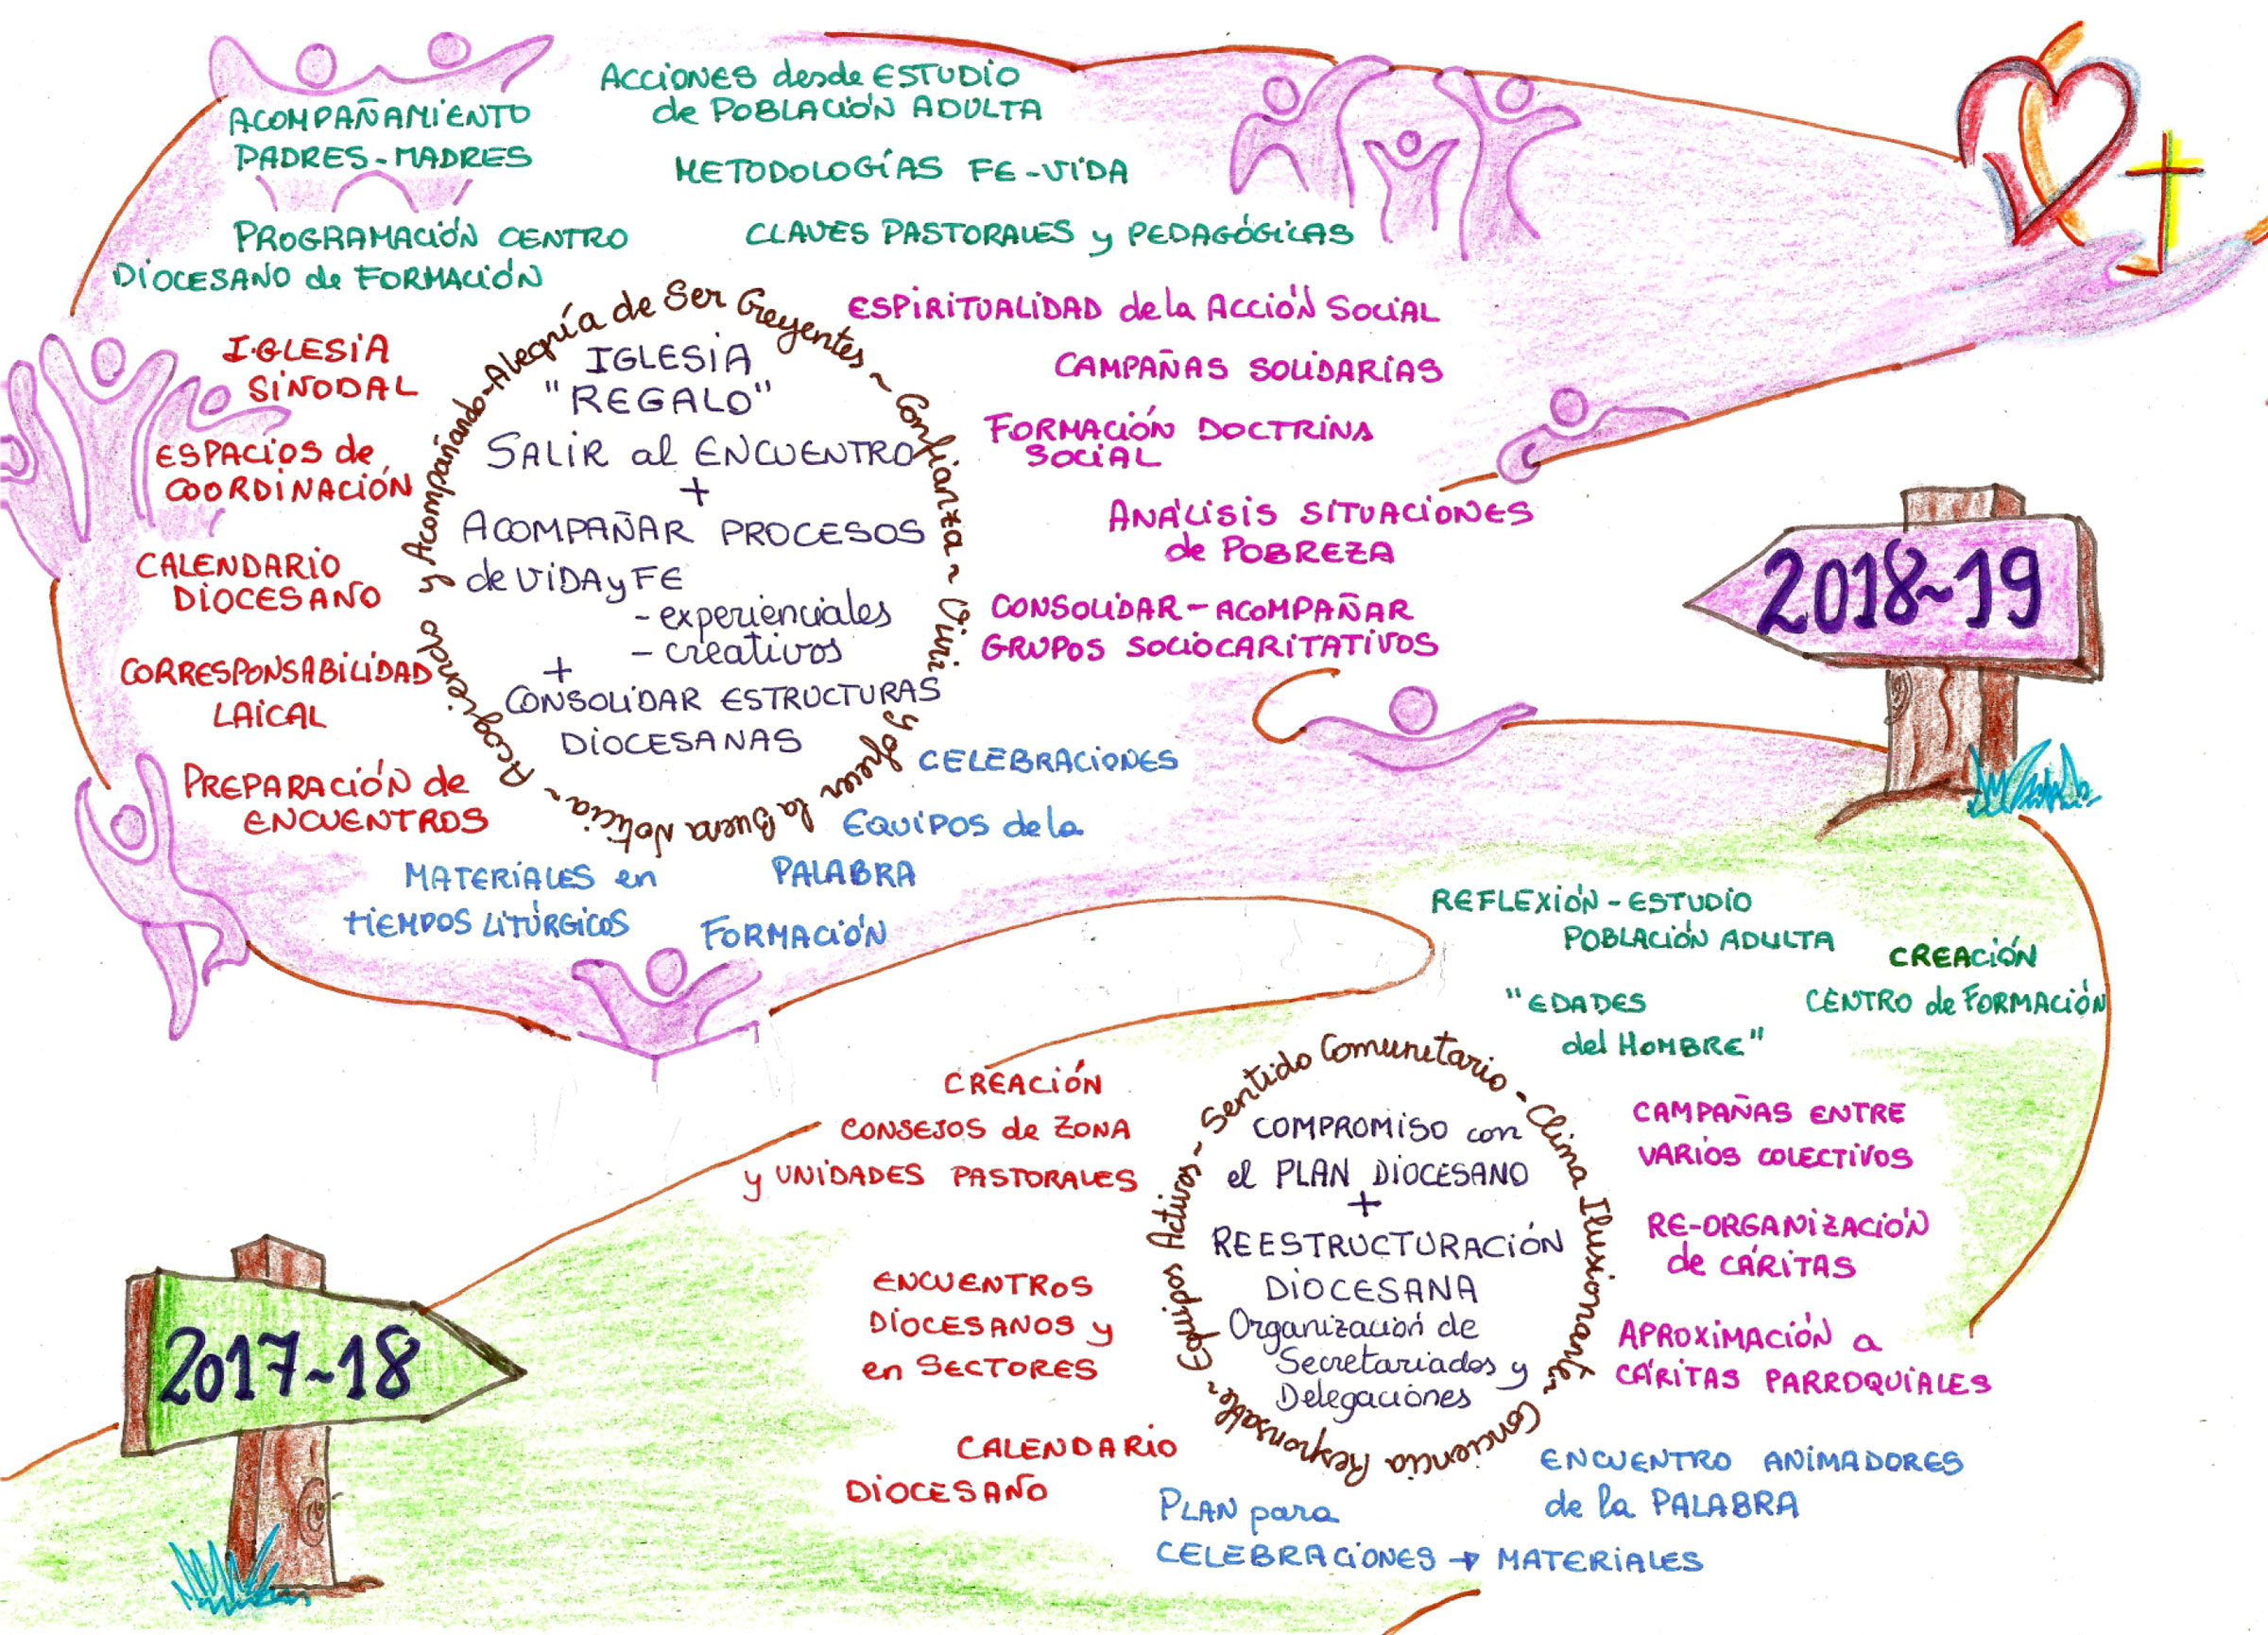 ACOMPAÑAMIENTO
PADRES-MADRES
PROGRAMACIÓN CENTRO
DIOCESANO de FORMACIÓN
ACCIONES desde ESTUDIO
de POBLACIÓN ADULTA
METODOLOGÍAS FE-VIDA
CLAVES PASTORALES y PEDAGÓGICAS
ESPIRITUALIDAD de la ACCIÓN SOCIAL
CAMPAÑAS SOLIDARIAS
FORMACIÓN DOCTRINA
SOCIAL
ANÁLISIS SITUACIONES
de POBREZA
CONSOLIDAR-ACOMPAÑAR
GRUPOS SOCIOCARITATIVOS
IGLESIA
SINODAL
ESPACIOS de
COORDINACIÓN
CALENDARIO
DIOCESANO
CORRESPONSABILIDAD
LAICAL
PREPARACIÓN de
ENCUENTROS
Alegría de Ser Creyentes ~ Confianza ~ Vivir y ofrecer la Buena Noticia ~ Acogiendo y Acompañando -
IGLESIA
"REGALO"
SALIR al ENCUENTRO
+
ACOMPAÑAR PROCESOS
de VIDA y FE
- experienciales
- creativos
+
CONSOLIDAR ESTRUCTURAS
DIOCESANAS
CELEBRACIONES
EQUIPOS de la
PALABRA
FORMACIÓN
MATERIALES en
TIEMPOS LITÚRGICOS
2018~19
REFLEXIÓN - ESTUDIO
POBLACIÓN ADULTA
CREACIÓN
CENTRO de FORMACIÓN
"EDADES
del HOMBRE"
CREACIÓN
CONSEJOS de ZONA
y UNIDADES PASTORALES
ENCUENTROS
DIOCESANOS y
en SECTORES
CALENDARIO
DIOCESANO
Sentido Comunitario - Clima Ilusionante - Conciencia Responsable - Equipos Activos -
COMPROMISO con
el PLAN DIOCESANO
+
REESTRUCTURACIÓN
DIOCESANA
Organización de
Secretariados y
Delegaciones
CAMPAÑAS ENTRE
VARIOS COLECTIVOS
RE-ORGANIZACIÓN
de CÁRITAS
APROXIMACIÓN a
CÁRITAS PARROQUIALES
ENCUENTRO ANIMADORES
de la PALABRA
PLAN para
CELEBRACIONES → MATERIALES
2017~18